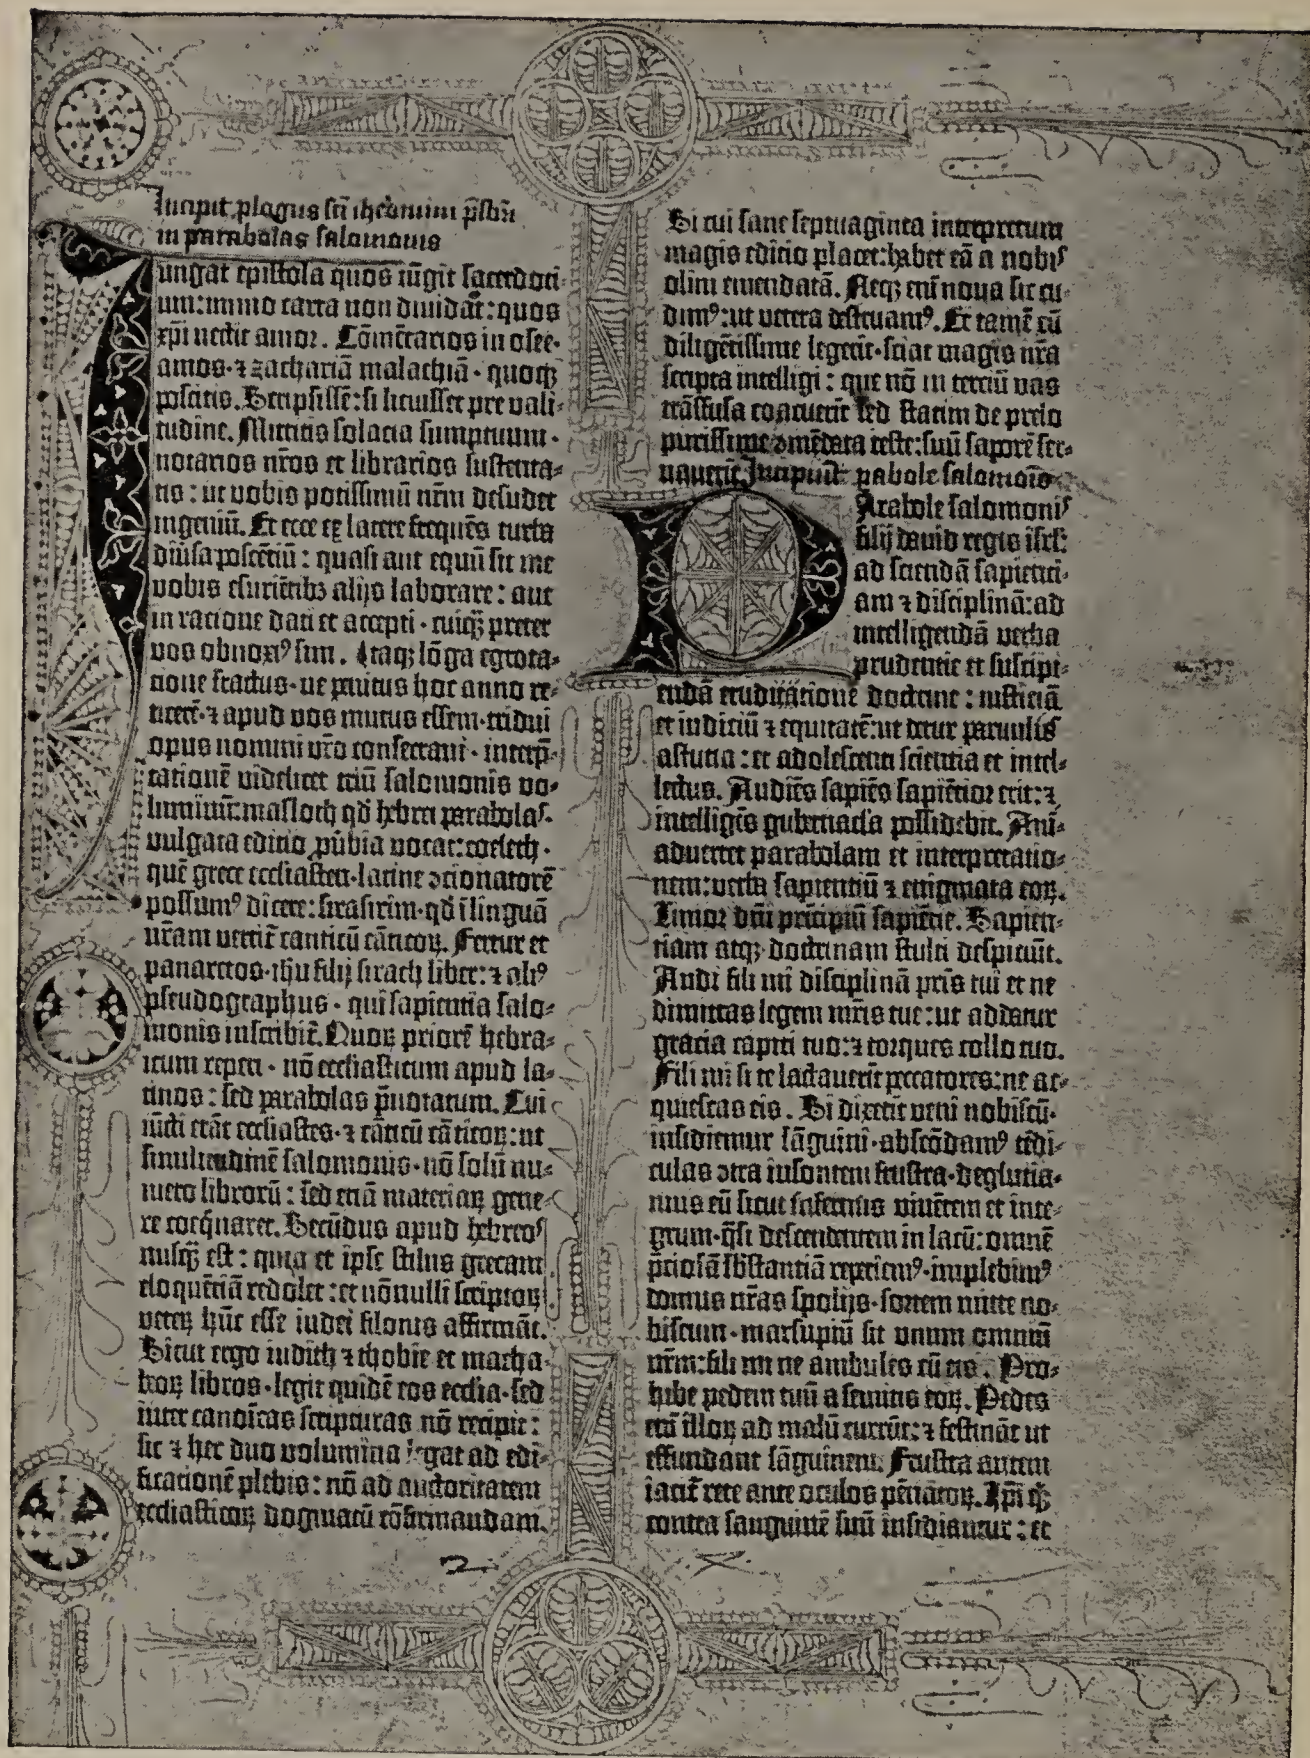 Incipit plogus sci iheronimi p̄sbiti
in parabolas salomonis
Iungat epistola quos iūgit sacerdoci-
um: immo carta non diuidāt: quos
xp̄i nectit amor. Cōmētarios in osee·
amos·⁊ zachariā malachiā· quoqꝫ
poscitis. Scripsissē: si licuisset pre vali-
tudine. Mittitis solacia sumptuum·
notarios nr̄os et librarios sustenta-
tis: ut vobis potissimū nr̄m desudet
ingeniū. Et ecce ex latere frequēs turba
diūsa poscētiū: quasi aut equū sit me
vobis esuriētibꝫ alijs laborare: aut
in racione dati et accepti· cuiqꝫ preter
vos obnoxiꝰ sim. Itaqꝫ lōga egrota-
tione fractus· ne penitus hoc anno re-
ticerē·⁊ apud vos mutus essem· tridui
opus nomini vr̄o consecraui· interp̄-
tationē videlicet triū salomonis vo-
luminū: masloth qd̄ hebrei parabolas·
vulgata editio ꝓubia vocat: coeleth·
quē grece ecclesiasten· latine ↄcionatorē
possumꝰ dicere: sirasirim· qd̄ ī linguā
nr̄am vertit̄ canticū cāticoꝝ. Fertur et
panaretos· ihu filij sirach liber: ⁊ aliꝰ
pseudographus· qui sapientia salo-
monis inscribit̄. Quoꝝ priorē hebra-
icum reperi· nō ecclesiasticum apud la-
tinos: sed parabolas p̄notatum. Cui
iūcti erāt ecclesiastes·⁊ cāticū cāticoꝝ: ut
similitudinē salomonis· nō solū nu-
mero librorū: sed etiā materiaꝝ gene-
re coeq̄naret. Secūdus apud hebreos
nusqꝫ est: quia et ipse stilus grecam
eloquētiā redolet: et nōnulli scriptoꝝ
veteꝝ hūc esse iudei filonis affirmāt.
Sicut ergo iudith ⁊ thobie et macha-
beoꝝ libros· legit quidē eos ecclīa· sed
inter canōicas scripturas nō recipit:
sic ⁊ hec duo volumina legat ad edi-
ficationē plebis: nō ad auctoritatem
ecclesiasticoꝝ dogmatū cōfirmandam.
Si cui sane septuaginta interpretum
magis editio placet: habet eā a nobis
olim emendatā. Neqꝫ enī noua sic cu-
dimꝰ: ut vetera destruamꝰ. Et tamē cū
diligētissime legerit· sciat magis nr̄a
scripta intelligi: que nō in terciū vas
trāsfusa coacuerit sed statim de prelo
purissime ↄmēdata teste: suū saporē ser-
uauerīt Incipiūt pabole salomōis
Parabole salomonis
filij dauid regis isrl̄:
ad sciendā sapienti-
am ⁊ disciplinā: ad
intelligendā verba
prudentie et suscipi-
endā eruditationē doctrine: iusticiā
et iudiciū ⁊ equitatē: ut detur paruulis
astutia: et adolescenti scientia et intel-
lectus. Audiēs sapiēs sapiētior erit: ⁊
intelligēs gubernacla possidebit. Anī-
aduertet parabolam et interpretatio-
nem: verba sapientiū ⁊ enigmata eoꝝ.
Timor dn̄i principiū sapiētie. Sapien-
tiam atqꝫ doctrinam stulti despiciūt.
Audi fili mi disciplinā pr̄is tui et ne
dimittas legem mr̄is tue: ut addatur
gracia capiti tuo: ⁊ torques collo tuo.
Fili mi si te lactauerīt peccatores: ne ac-
quiescas eis. Si dixerīt veni nobiscū·
insidiemur sāguini· abscōdamꝰ tēdi-
culas ↄtra insontem frustra· deglutia-
mus eū sicut infernus viuētem et inte-
grum· q̄si descendentem in lacū: omnē
p̄ciosā sb̄stantiā reperiemꝰ· implebimꝰ
domus nr̄as spolijs· sortem mitte no-
biscum· marsupiū sit unum omniū
nr̄m: fili mi ne ambules cū eis. Pro-
hibe pedem tuū a semitis eoꝝ. Pedes
enī illoꝝ ad malū currūt: ⁊ festināt ut
effundant sāguinem. Frustra autem
iacit̄ rete ante oculos pēnatoꝝ. Ip̄i qꝫ
contra sanguinē suū insidiantur: et